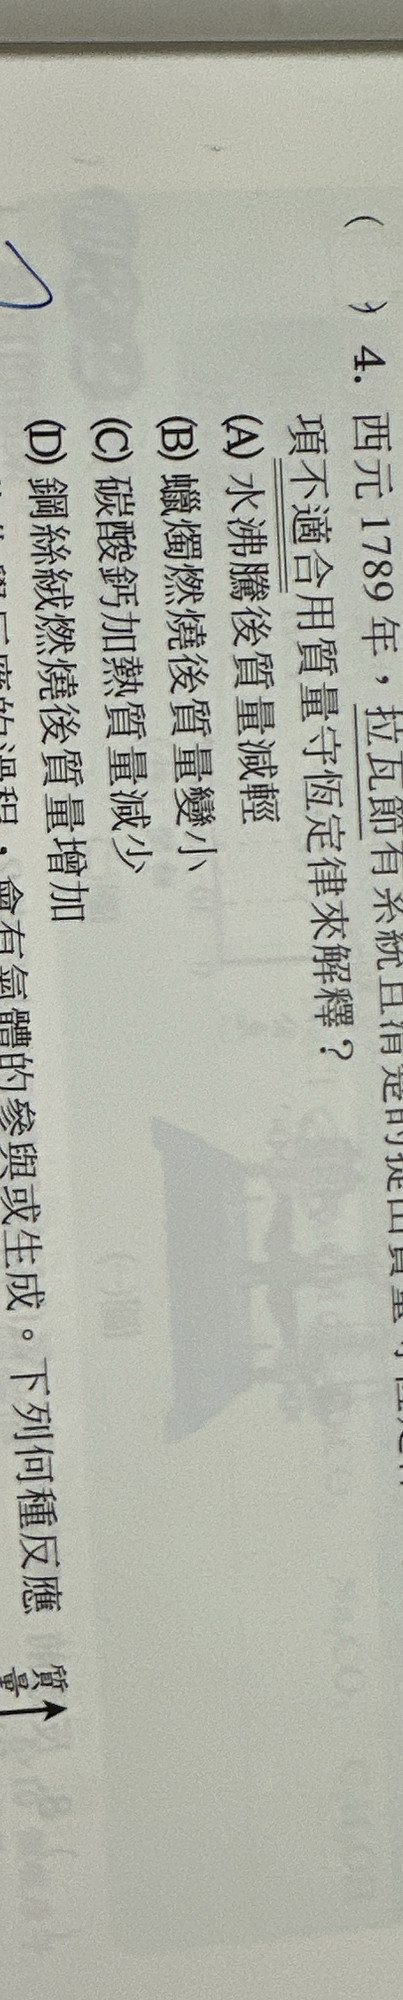 ( ) 4. 西元 1789 年,拉瓦節有系統且清楚的提出質量守恆定律
項不適合用質量守恆定律來解釋?
(A) 水沸騰後質量減輕
(B) 蠟燭燃燒後質量變小
(C) 碳酸鈣加熱質量減少
(D) 鋼絲絨燃燒後質量增加
反應的過程,會有氣體的參與或生成。下列何種反應
質量